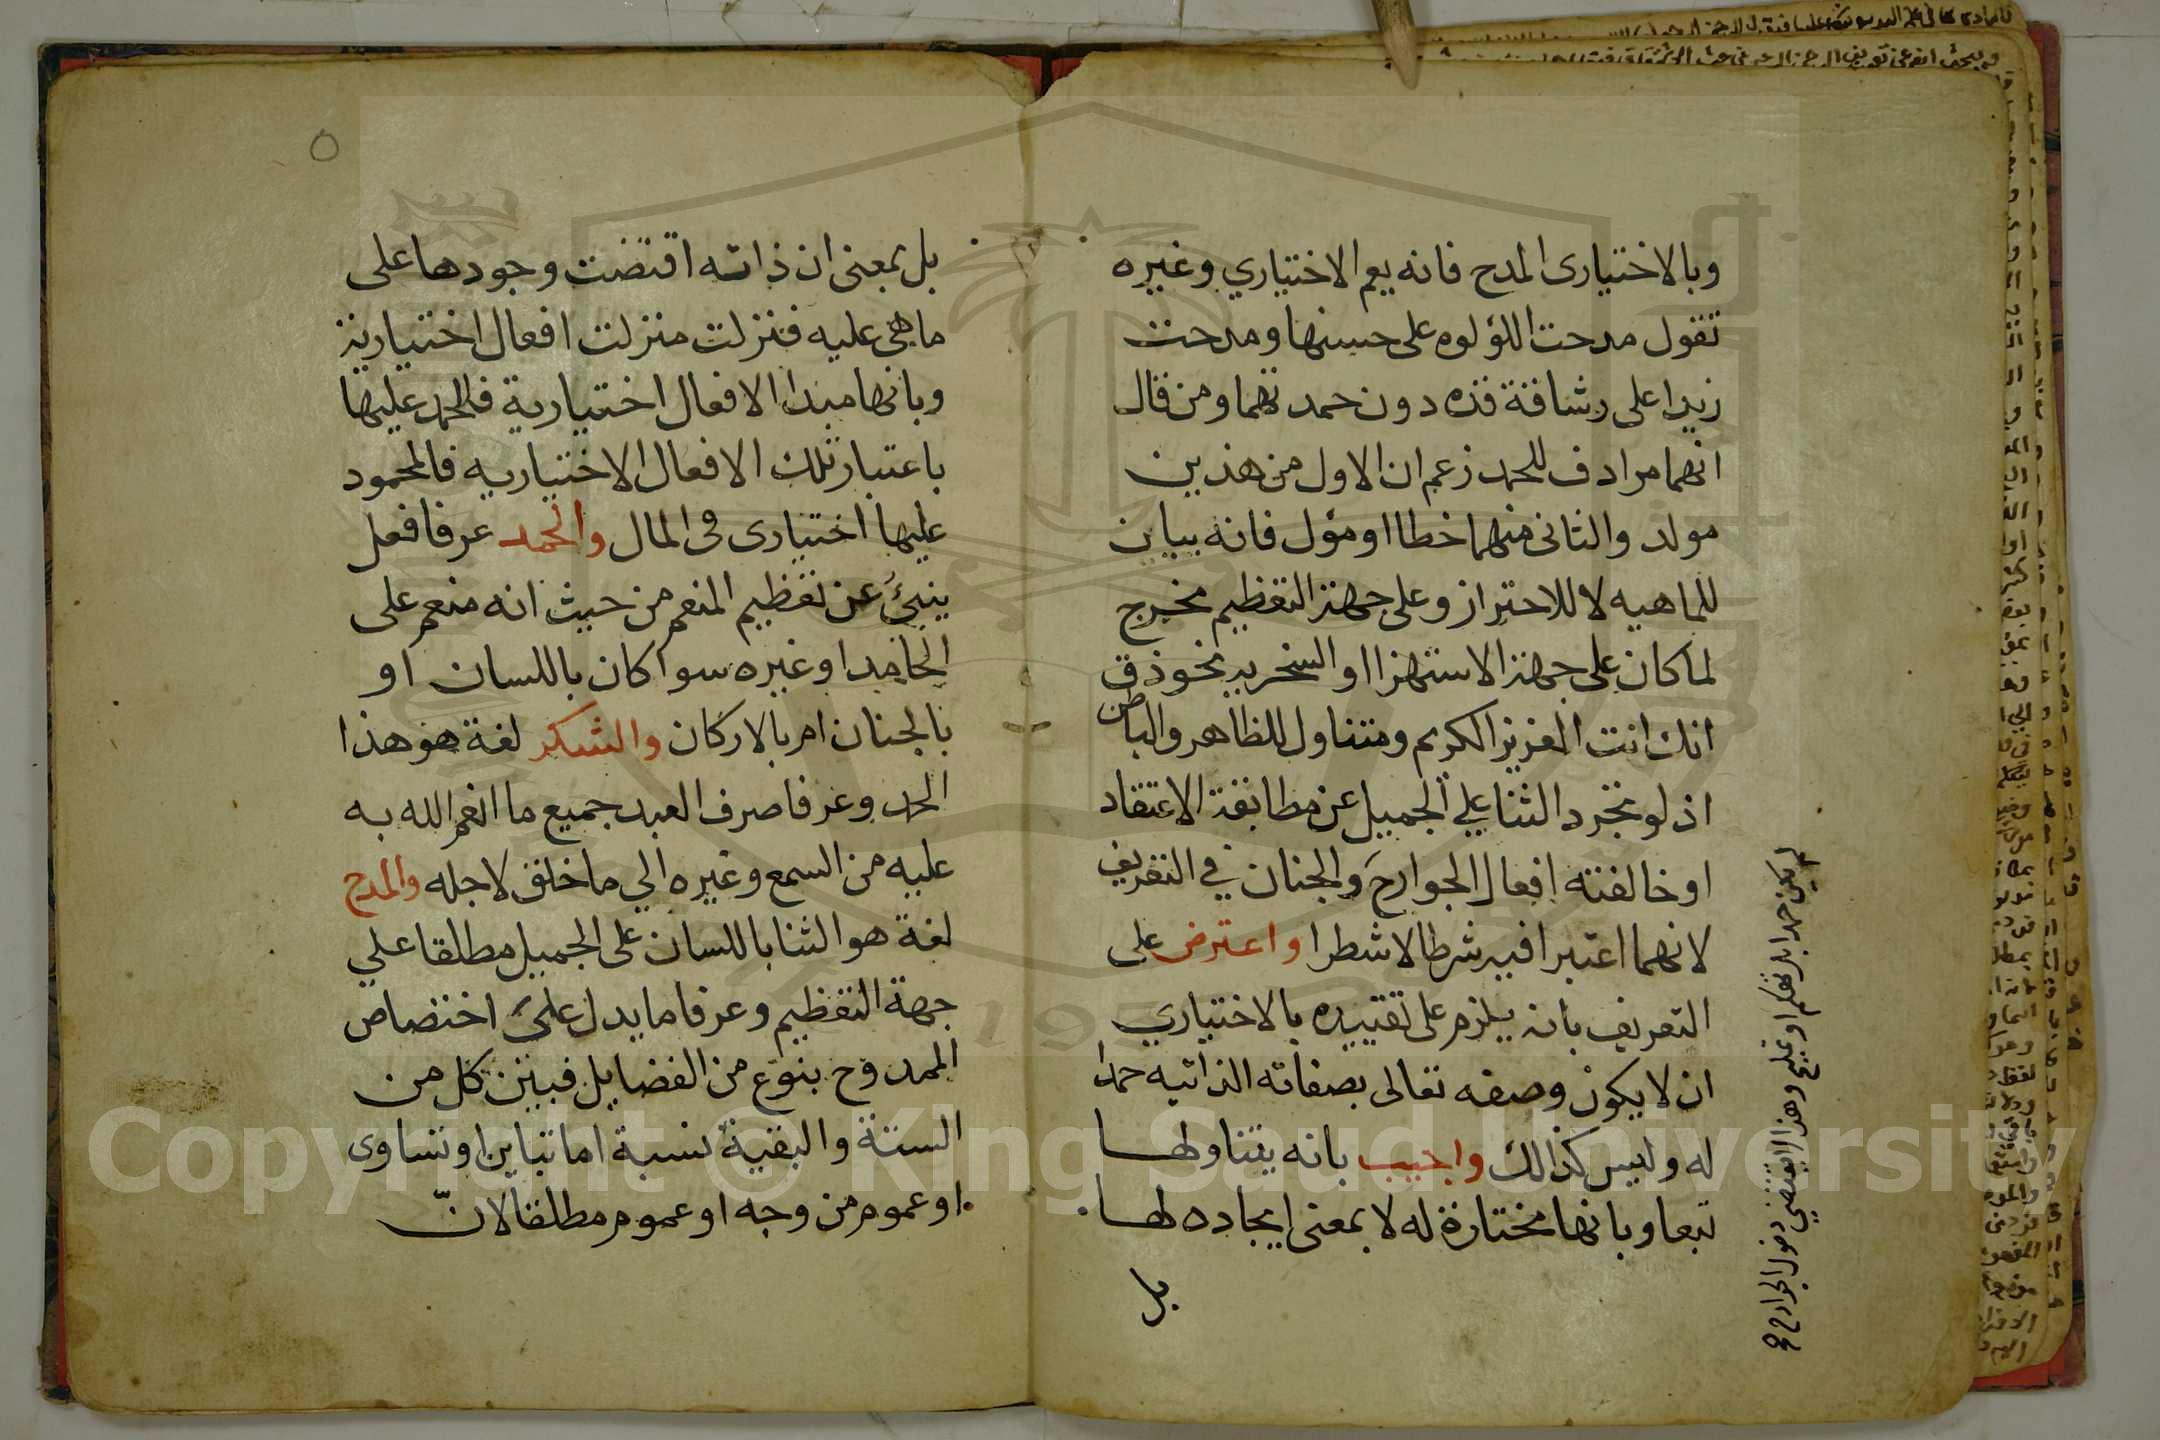 وبالاختيارى المدح فانه يعم الاختياري وغيره
تقول مدحت اللؤلوه على حسنها ومدحت
زيدا على رشاقة قده دون حمدتهما ومن قال
انهما مرادف للحمد زعم ان الاول من هذين
مولد والثانى منهما خطا او مؤل فانه بيان
للماهيه لا للاحتراز وعلى جهة التعظيم مخرج
لما كان على جهة الاستهزا او السخريه نحو ذق
انك انت العزيز الكريم ومتناول للظاهر والباطن
اذ لو تجرد الثنا علي الجميل عن مطابقة الاعتقاد
او خالفته افعال الجوارح والجنان في التعريف
لانهما اعتبرا فيه شرطا لا شطرا واعترض على
التعريف بانه يلزم على تقييده بالاختياري
ان لا يكون وصفه تعالى بصفاته الذاتيه حمدا
له وليس كذالك واجيب بانه يتناولها
تبعا وبانها مختارة له لا بمعنى ايجاده لها
بل
لم يكن حمدا بل تهكم او تمليح وهذا لا يقتضي دخول الجوارح
٥
بل بمعنى ان ذاته اقتضت وجودها على
ما هى عليه فنزلت منزلت افعال اختيارية
وبانها مبدا لافعال اختيارية فالحمد عليها
باعتبار تلك الافعال الاختياريه فالمحمود
عليها اختيارى فى المال والحمد عرفا فعل
ينبئ عن تعظيم المنعم من حيث انه منعم على
الحامد او غيره سوا كان باللسان او
بالجنان ام بالاركان والشكر لغة هو هذا
الحمد وعرفا صرف العبد جميع ما انعم الله به
عليه من السمع وغيره الي ما خلق لاجله والمدح
لغة هو الثنا باللسان على الجميل مطلقا علي
جهة التعظيم وعرفا ما يدل على اختصاص
الممدوح بنوع من الفضايل فبين كل من
الستة والبقية نسبة اما تباين او تساوى
او عموم من وجه او عموم مطلقا لانّ
Copyright © King Saud University